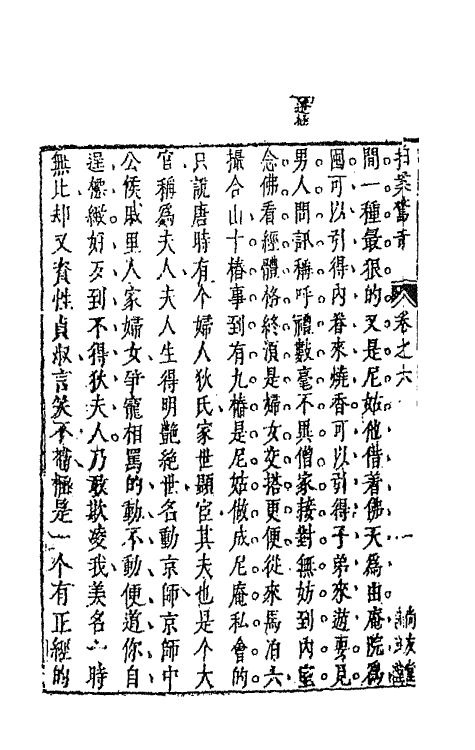 拍案驚奇 卷之六 一 尚友堂
間一種最狠的又是尼姑他借着佛天爲由庵院爲
囤可以引得內眷來燒香可以引得子弟來遊耍見
男人問訊稱呼禮數毫不異僧家接對無妨到內室
念佛看經體格終湏是婦女交搭更便從來馬泊六
撮合山十樁事到有九樁是尼姑做成尼庵私會的
只說唐時有个婦人狄氏家世顯宦其夫也是个大
官稱爲夫人夫人生得明艶絶世名動京師京師中
公侯戚里人家婦女爭寵相罵的動不動便道你自
逞標緻好歹到不得狄夫人乃敢欺凌我美名一時
無比却又資性貞淑言笑不苟極是一个有正經的